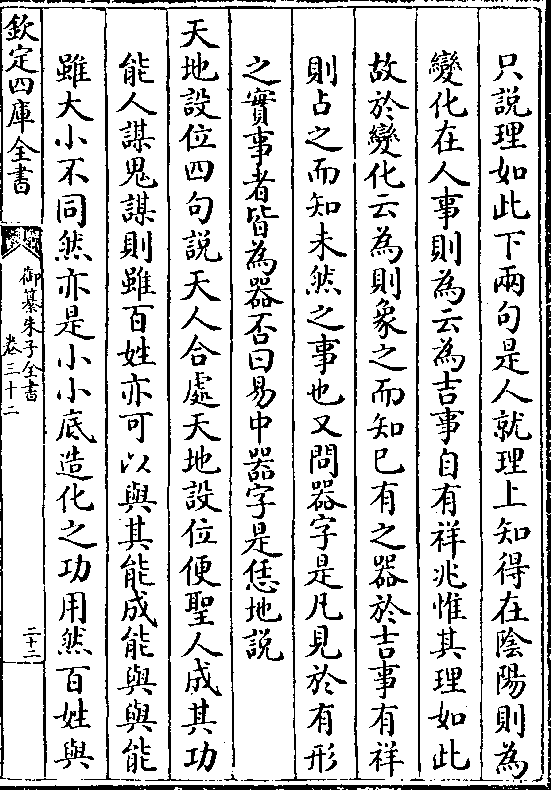 只說理如此下兩句是人就理上知得在陰陽則為
變化在人事則為云為吉事自有祥兆惟其理如此
故於變化云為則象之而知已有之器於吉事有祥
則占之而知未然之事也又問器字是凡見於有形
之實事者皆為器否曰易中器字是恁地説
天地設位四句説天人合處天地設位便聖人成其功
能人謀鬼謀則雖百姓亦可以與其能成能與與能
雖大小不同然亦是小小底造化之功用然百姓與
欽定四庫全書
御纂朱子全書
卷三十二
二十二